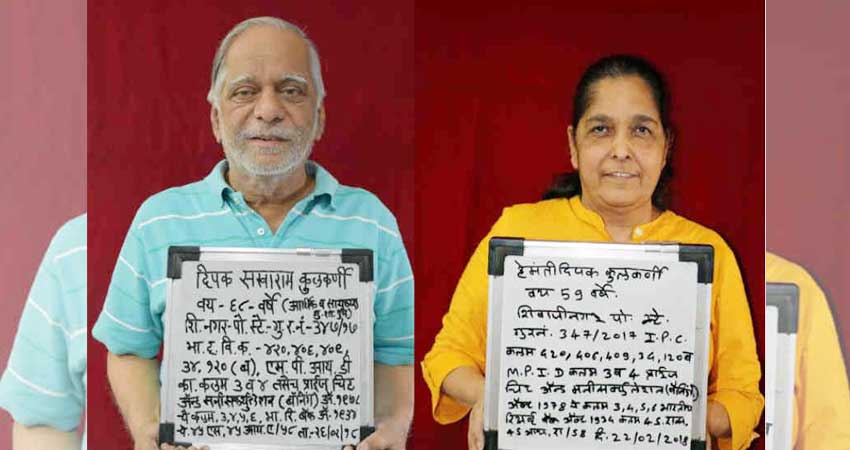 दिपक सखाराम कुलकर्णी
वय - ६८ - वर्षे (आर्थिक व सायबर
शि.नगर-पो.स्टे-गु.र.नं-३४७/१७
भा.द.वि.क.-४२०,४०६,४०९,
३४,१२०(ब), एम.पी.आय.डी
का.कलम ३ व ४ तसेच प्राईज चिट
अॅन्ड मनीसर्क्युलेशन (बॅनिंग) अॅ.१९७८
चे कलम.३,४,५,६, भा.रि.बँक अॅ.१९३४
चे.४५ एस,४५ आय ए/५८ ता-२६/०२/१८
हेमंती दिपक कुलकर्णी
वय 59 वर्षे.
शिवाजीनगर पो. स्टे.
गुरनं. 347/2017 I.P.C.
कलम 420, 406, 409, 34, 120ब
M.P.I.D कलम 3 व 4 प्राईज
चिट अॅन्ड मनीसर्क्युलेशन (बॅनिंग)
अॅक्ट 1978 चे कलम 3,4,5,6 भारतीय
रिझर्व्ह बँक अॅक्ट 1934 कलम 45
45 आय. ए/58 दि. 22/02/2018